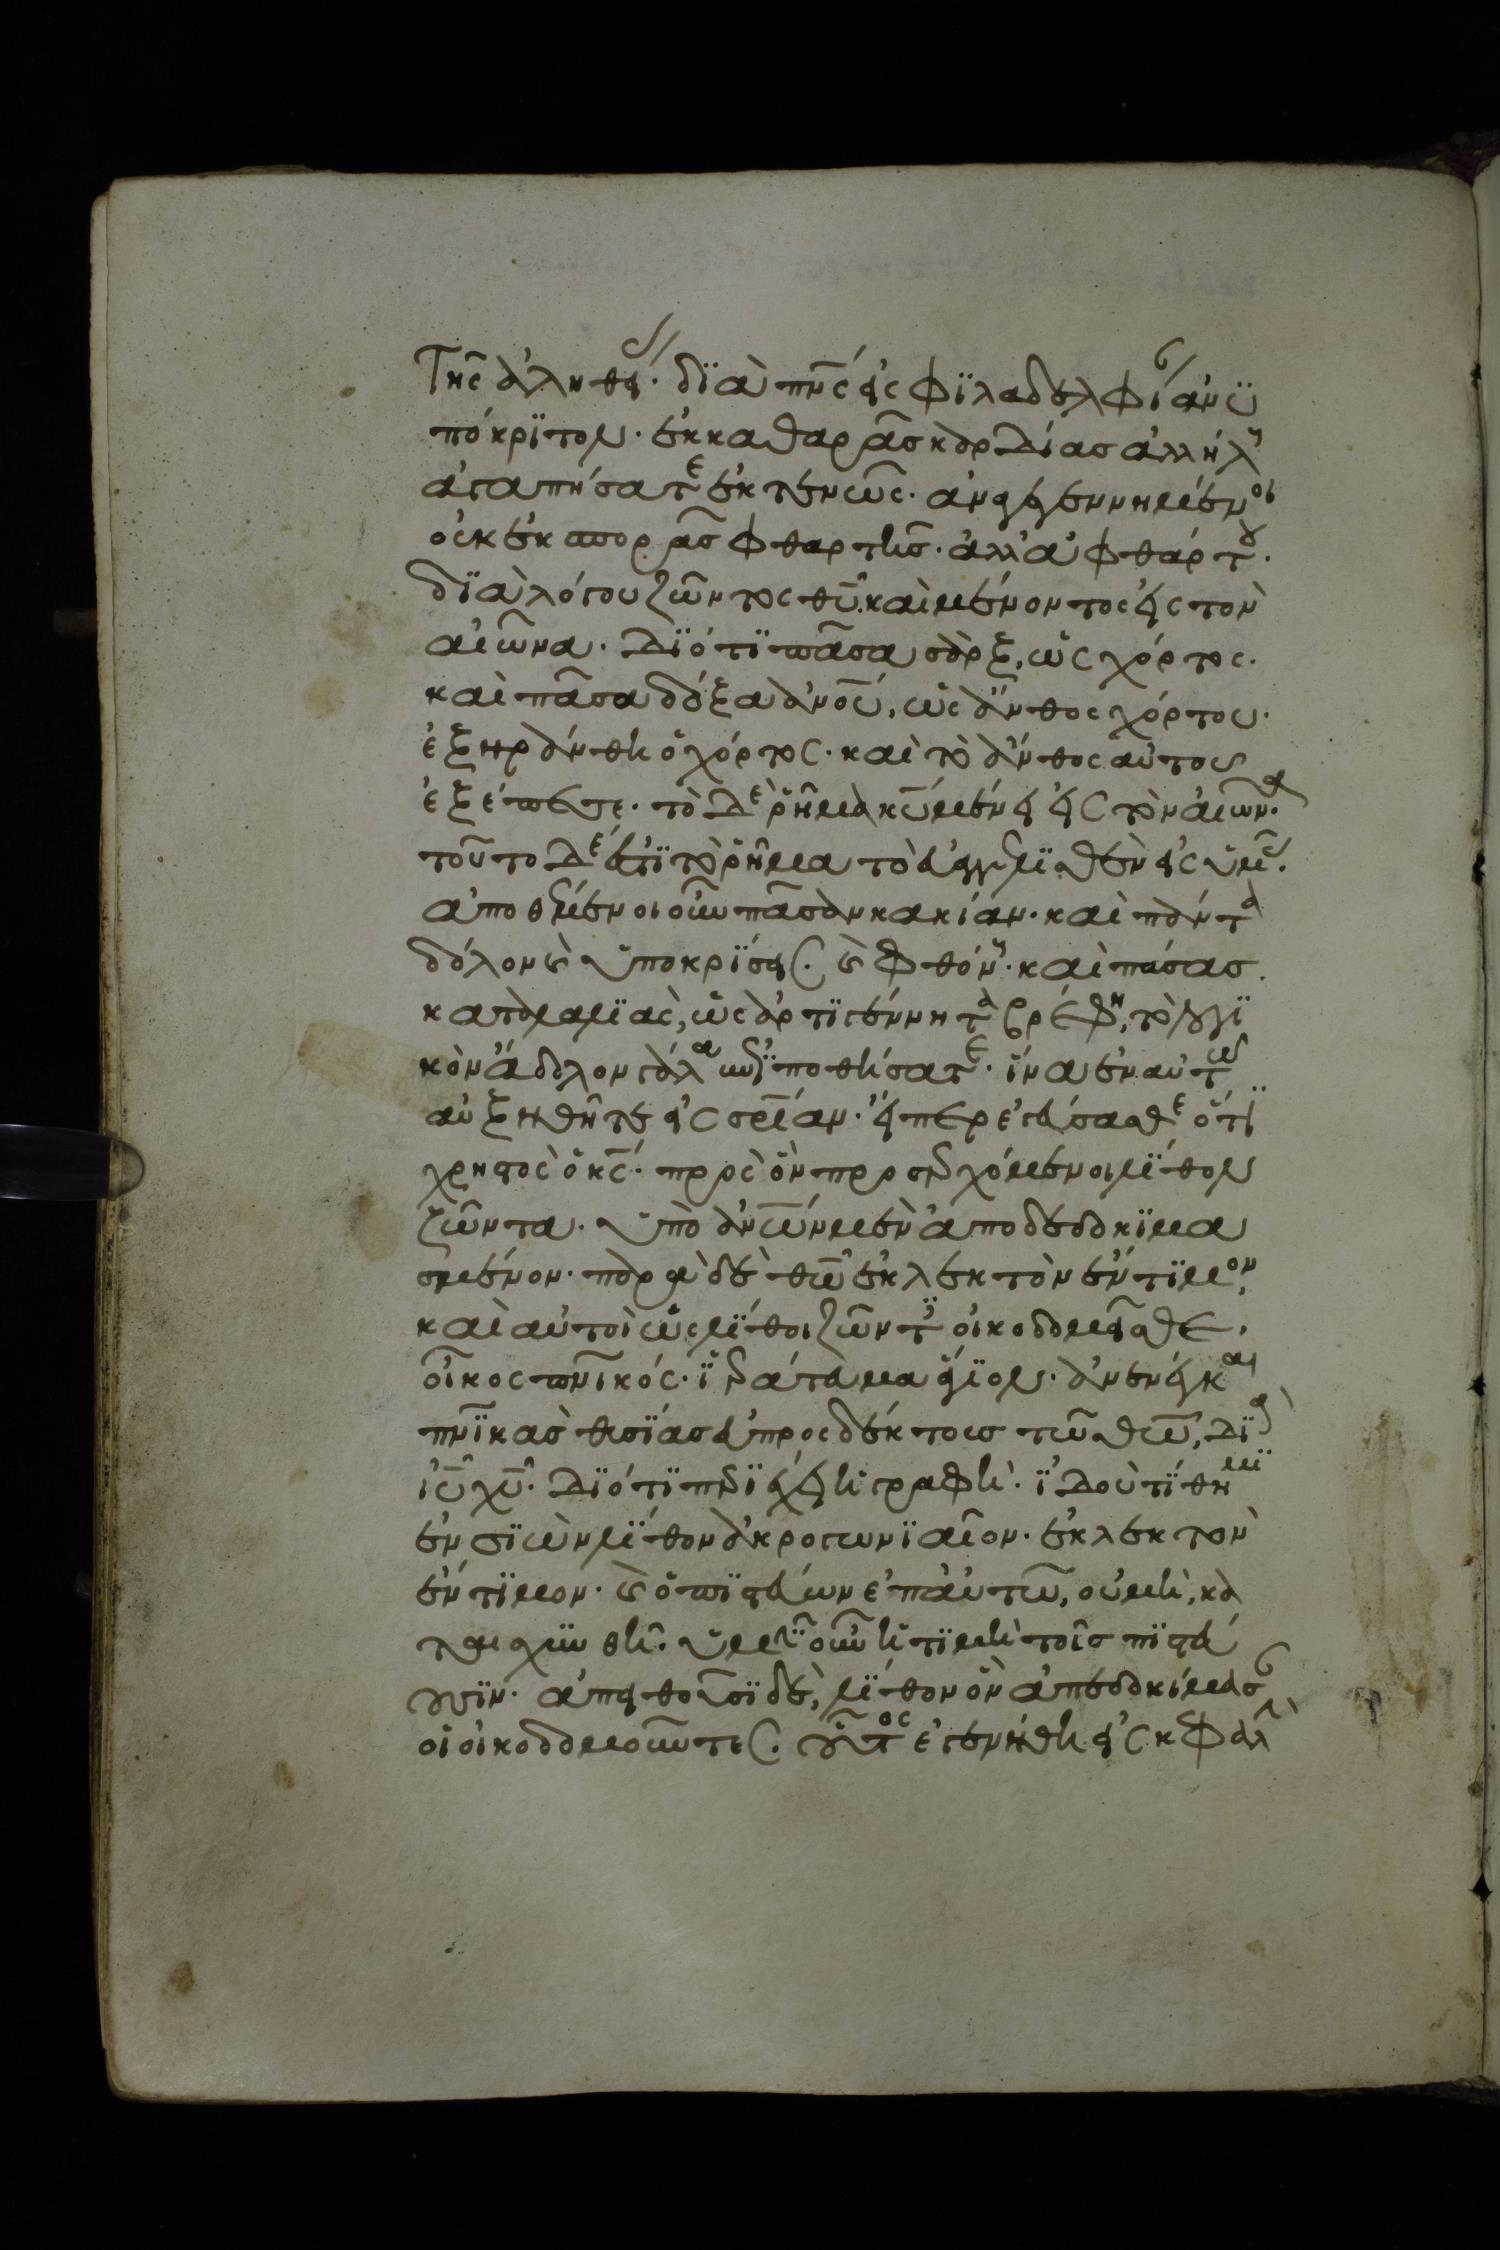 της ἀληθεί(ας)· διὰ πν̅ς εἰς φιλαδελφίαν ἀνυ
πόκριτον· ἐκ καθαρᾶς καρδίας ἀλλήλους
ἀγαπήσατε ἐκτενῶς· ἀναγεγεννημένοι
οὐκ ἐκ σπορᾶς φθαρτῆς· ἀλλ' ἀφθάρτου·
διὰ λόγου ζῶντος θυ̅ καὶ μένοντος εἰς τὸν
αἰῶνα· Διότι πᾶσα σὰρξ, ὡς χόρτος·
καὶ πᾶσα δόξα ἀνου̅, ὡς ἄνθος χόρτου·
ἐξηράνθη ὁ χόρτος· καὶ τὸ ἄνθος αὐτοῦ
ἐξέπεσε· τὸ δὲ ῥῆμα κυ̅ μένει εἰς τὸν αἰῶνα·
τοῦτο δέ ἐστι τὸ ῥῆμα τὸ εὐαγγελισθὲν εἰς ὑμᾶς·
ἀποθέμενοι οὖν πᾶσαν κακίαν· καὶ πάντα
δόλον καὶ ὑποκρίσεις· καὶ φθόνους· καὶ πάσας
καταλαλιὰς, ὡς ἀρτιγέννητα βρέφη, τὸ λογι
κὸν ἄδολον γάλα ἐπιποθήσατε· ἵνα ἐν αὐτῶ
αὐξηθῆτε εἰς σρι̅αν· εἴπερ ἐγεύσασθε ὅτι
χρηστὸς ὁ κς̅· πρὸς ὃν προσερχόμενοι λίθον
ζῶντα· ὑπὸ ἀνω̅ν μὲν ἀποδεδοκιμα
σμένον· παρὰ δὲ θω̅ ἐκλεκτὸν ἔντιμον,
καὶ αὐτοὶ ὡς λίθοι ζῶντες οἰκοδομεῖσθε,
οἶκος πν̅ικός· ἱεράτευμα ἅγιον· ἀνενέγκαι
πν̅ικὰς θυσίας εὐπροσδέκτους τῶ θω̅, διὰ
ιυ̅ χυ̅· Διότι περιέχει ἡ γραφὴ· ἰδοὺ τίθημι
ἐν σιὼν λίθον ἀκρογωνιαῖον· ἐκλεκτὸν
ἔντιμον· καὶ ὁ πιστεύων ἐπ' αὐτῶ, οὐ μὴ, κα
ταισχυνθῆ· ὑμῖν οὖν ἡ τιμὴ τοῖς πιστεύ
ουσιν· ἀπειθοῦσι δὲ, λίθον ὃν ἀπεδοκίμασαν
οἱ οἰκοδομοῦντες· οὗτος ἐγενήθη εἰς κεφαλὴν